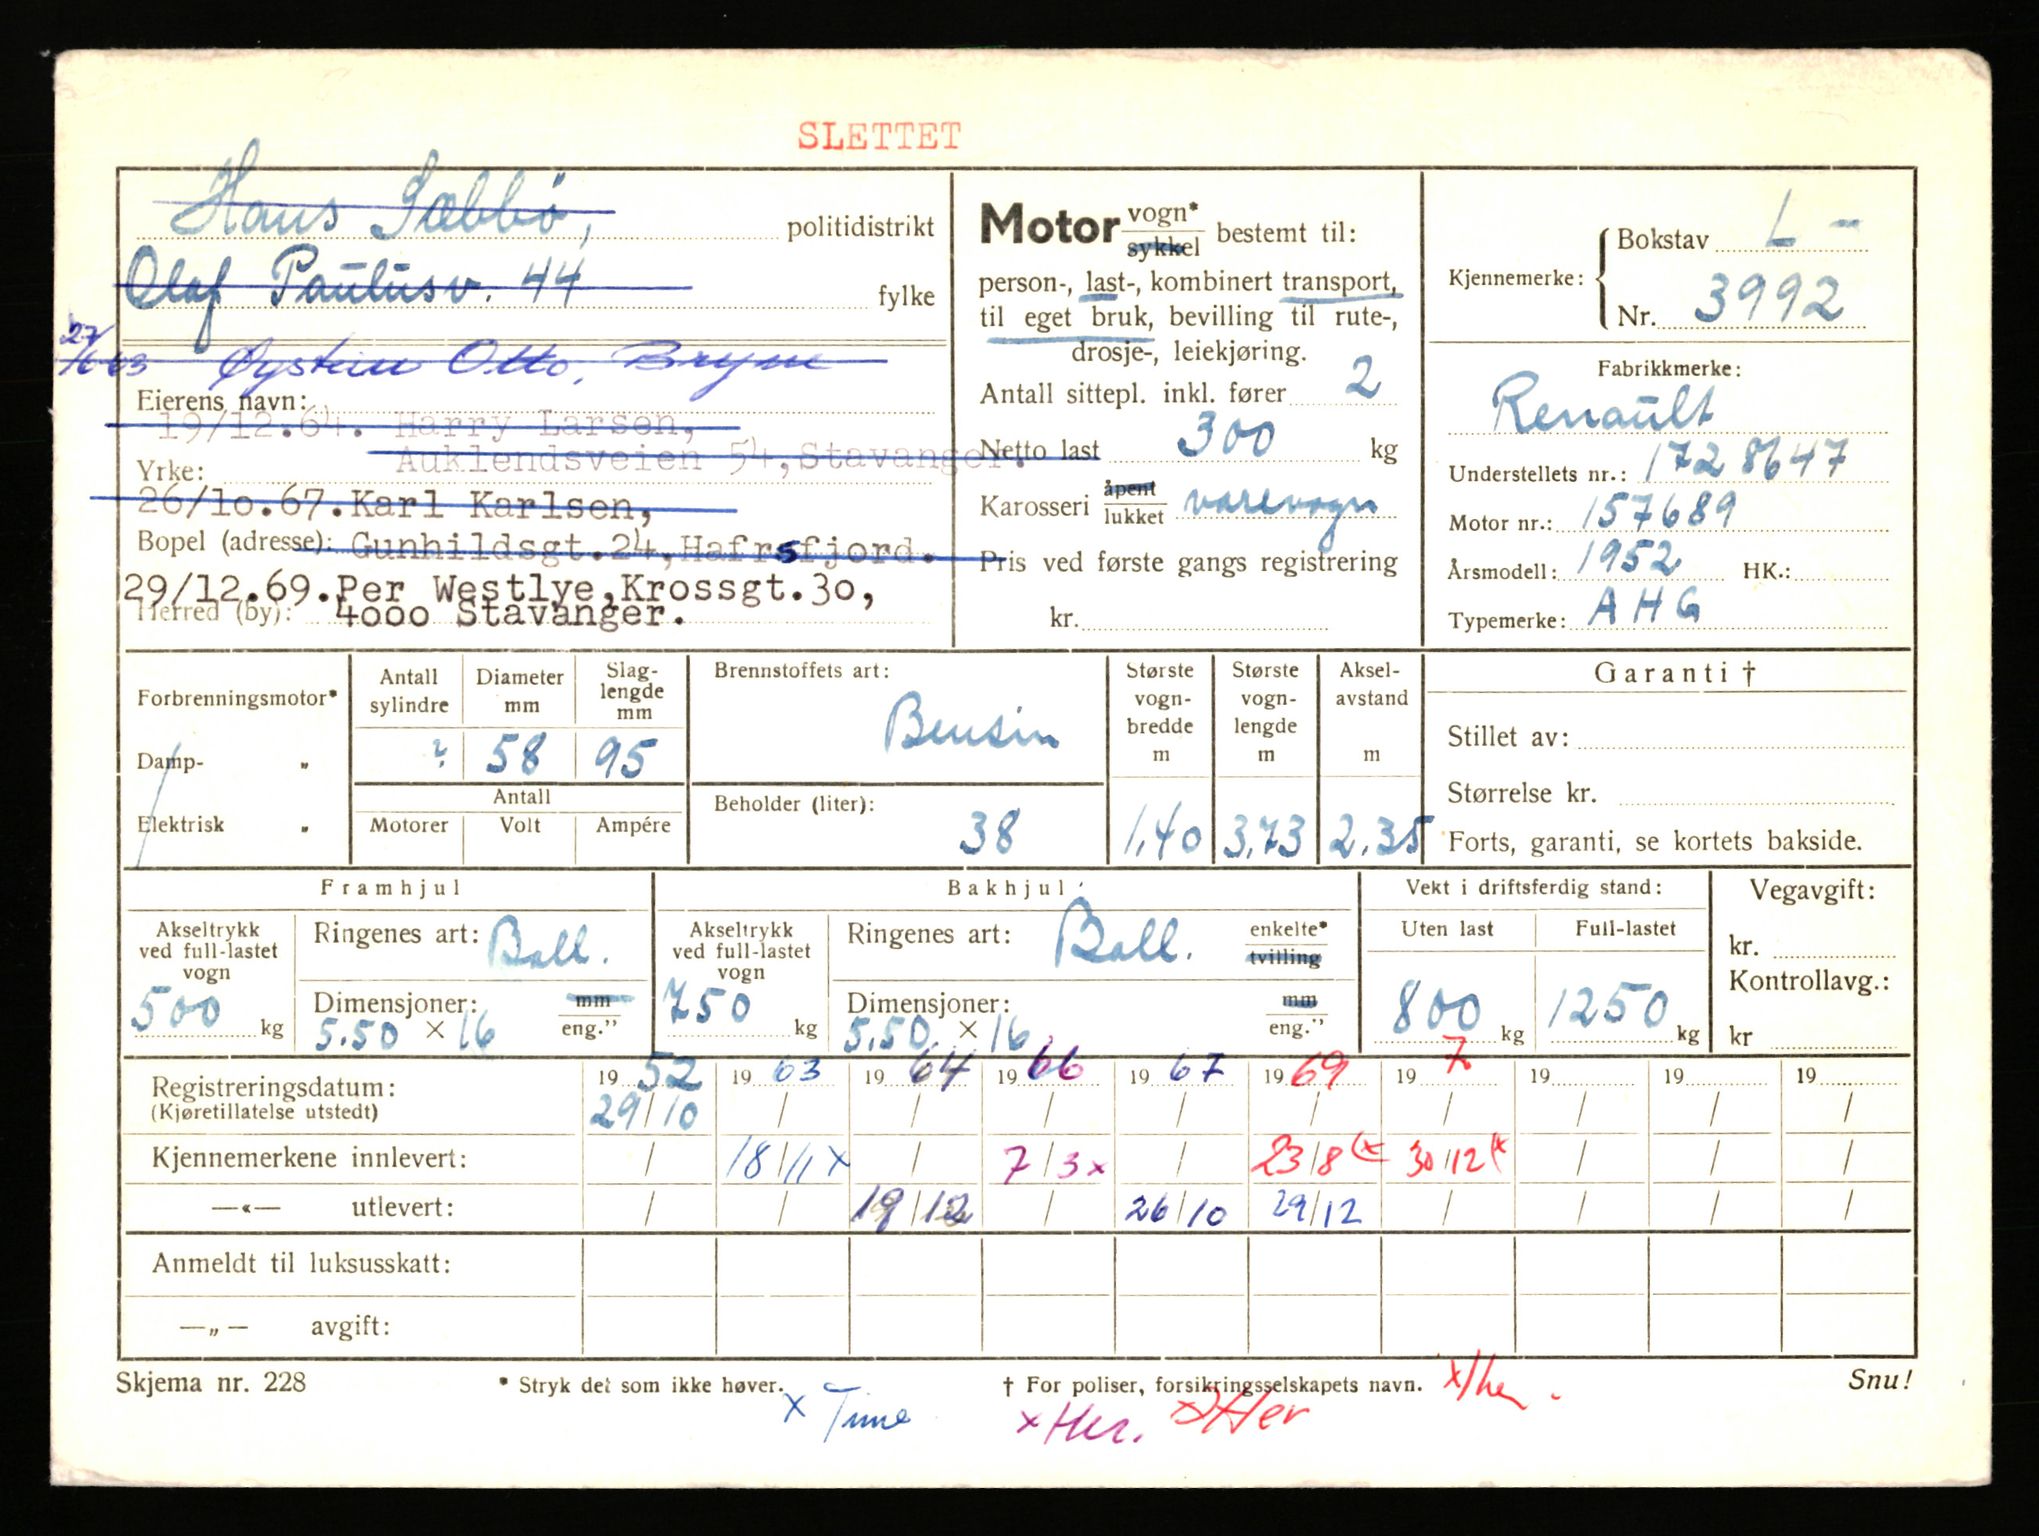 SLETTET
Hans Sæbbø, politidistrikt
Olaf Paulusv. 44 fylke
27/6-63 Øystein Otto, Bryne
Eierens navn:
19/12.64. Harry Larsen,
Yrke: Auklendsveien 54, Stavanger.
26/10.67. Karl Karlsen,
Bopel (adresse): Gunhildsgt.24, Hafrsfjord.
29/12.69. Per Westlye, Krossgt.30,
Herred (by): 4000 Stavanger.
Motor vogn* sykkel bestemt til:
person-, last-, kombinert transport,
til eget bruk, bevilling til rute-,
drosje-, leiekjøring.
Antall sittepl. inkl. fører 2
Netto last 300 kg
Karosseri åpent lukket varevogn
Pris ved første gangs registrering
kr.
Kjennemerke: Bokstav L -
Nr. 3992
Fabrikkmerke:
Renault
Understellets nr.: 1728647
Motor nr.: 157689
Årsmodell: 1952 HK.:
Typemerke: AHG
Forbrenningsmotor*
Damp- „
Elektrisk „
Antall sylindre ?
Diameter mm 58
Slaglengde mm 95
Antall
Motorer Volt Ampére
Brennstoffets art:
Bensin
Beholder (liter):
38
Største vognbredde m 1,40
Største vognlengde m 3,73
Akselavstand m 2.35
Garanti †
Stillet av:
Størrelse kr.
Forts, garanti, se kortets bakside.
Framhjul
Akseltrykk ved full-lastet vogn 500 kg
Ringenes art: Ball.
Dimensjoner: mm
5.50 × 16 eng.”
Bakhjul
Akseltrykk ved full-lastet vogn 750 kg
Ringenes art: Ball. enkelte* tvilling
Dimensjoner: mm
5.50 × 16 eng.”
Vekt i driftsferdig stand:
Uten last Full-lastet
800 kg 1250 kg
Vegavgift:
kr.
Kontrollavg.:
kr
Registreringsdatum: 19 52 19 63 19 64 19 66 19 67 19 69 19 7 19 19 19
(Kjøretillatelse utstedt) 29/10 / / / / / / / / /
Kjennemerkene innlevert: / 18/11 x / 7/3 x / 23/8 (x 30/12 (x / / /
—«— utlevert: / / 19/12 / 26/10 29/12 / / / /
Anmeldt til luksusskatt:
—„— avgift:
Skjema nr. 228 * Stryk det som ikke høver. † For poliser, forsikringsselskapets navn. Snu!
x Time x Her. x Her x/her.